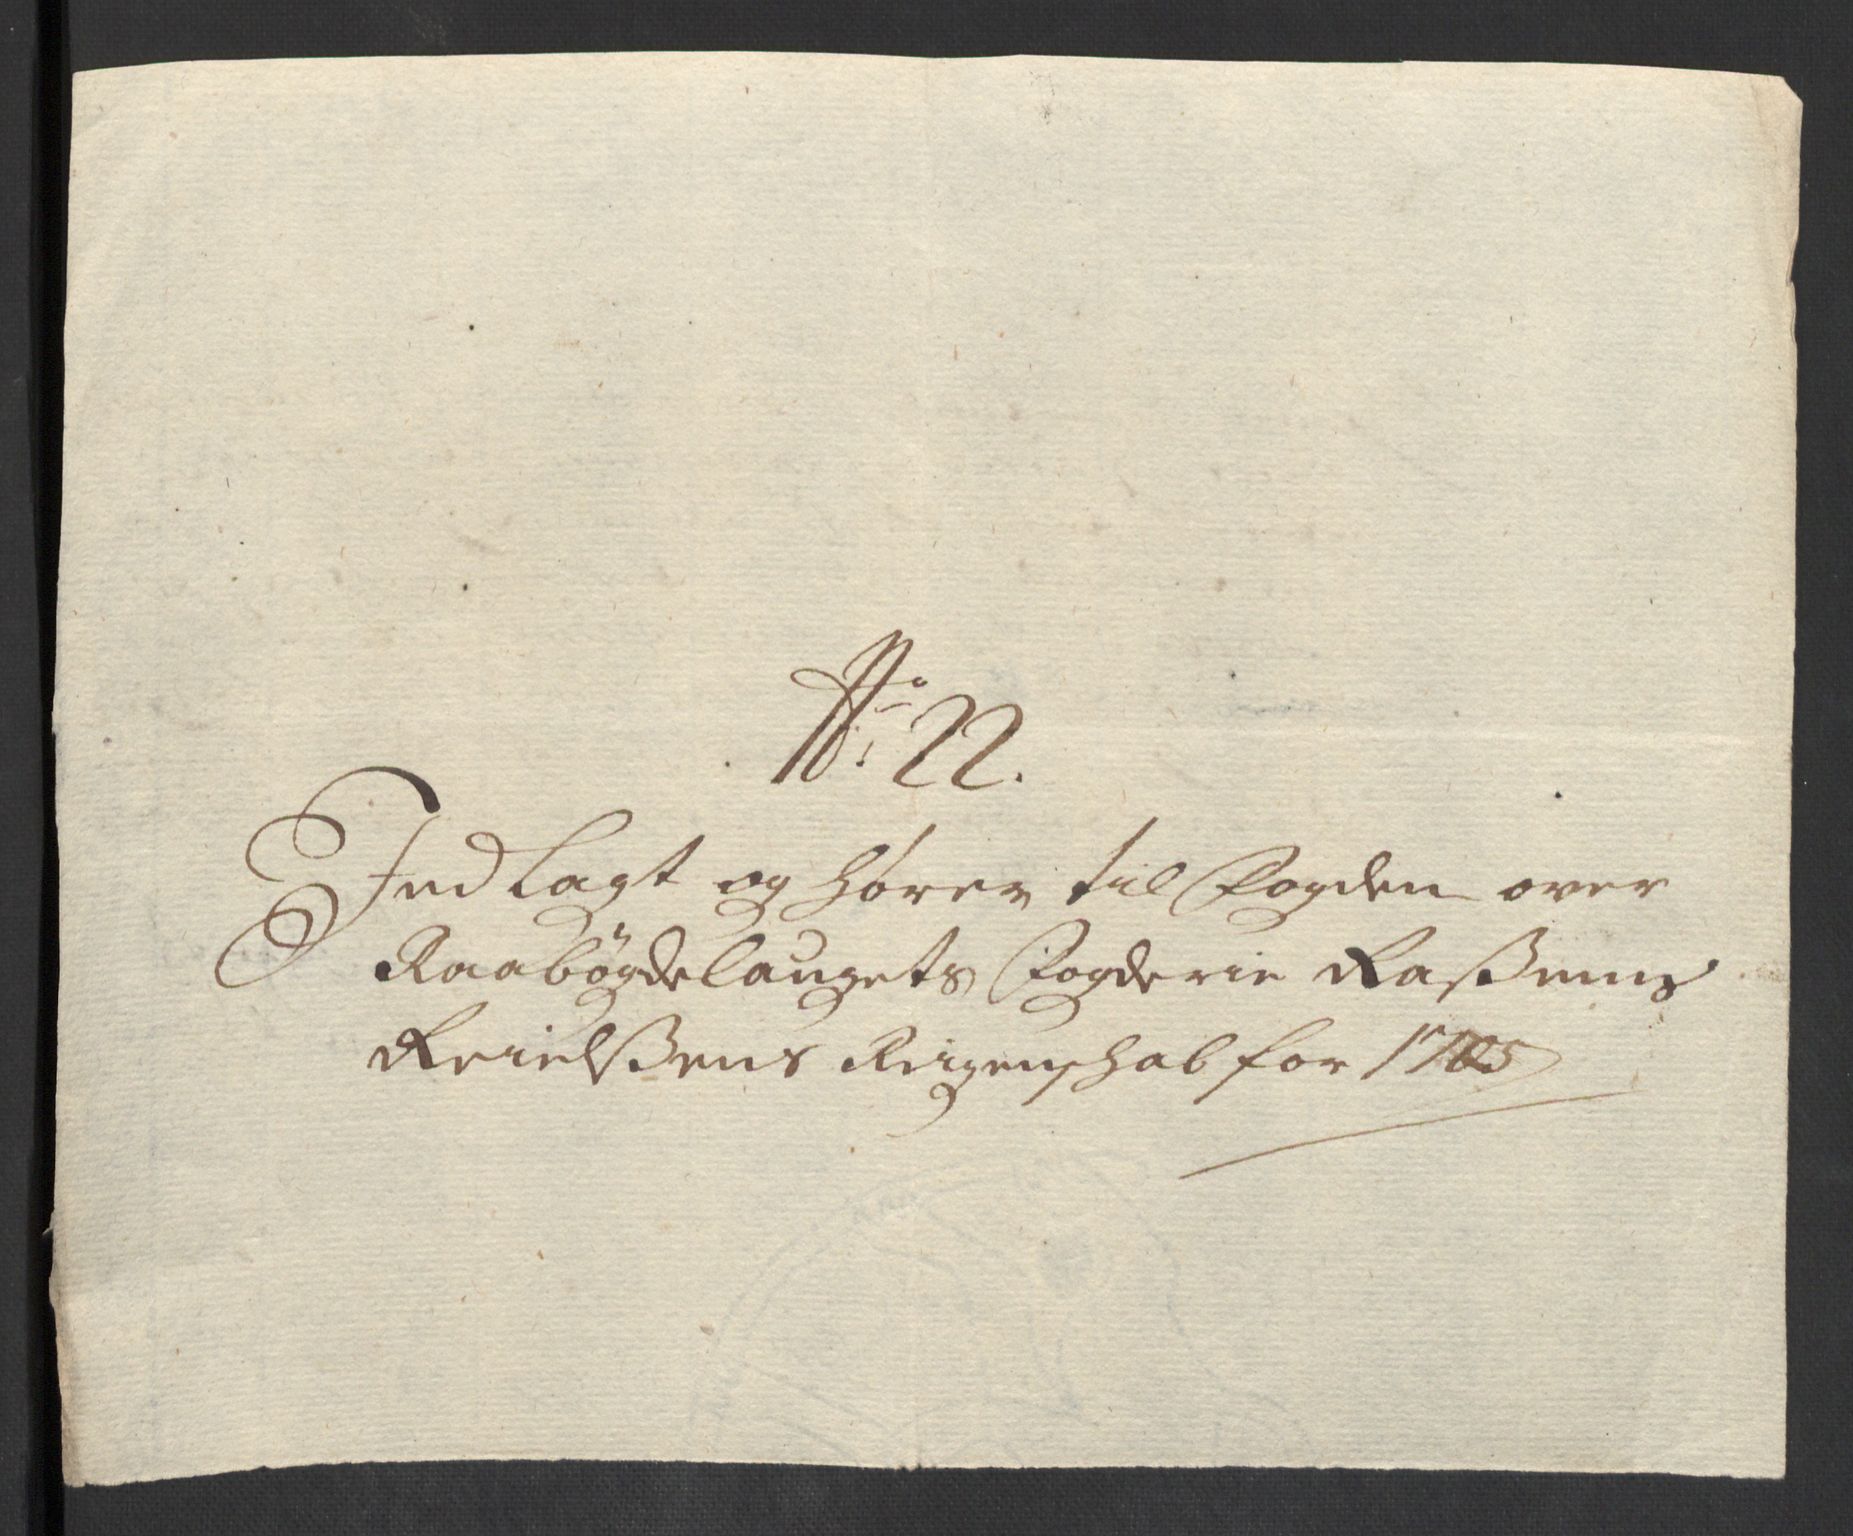 No: 22.
Ind lagt og hörer til Fogden over
Raabögdelaugets Fogderie Raßmus
Krielßens Reigenschab for 1705